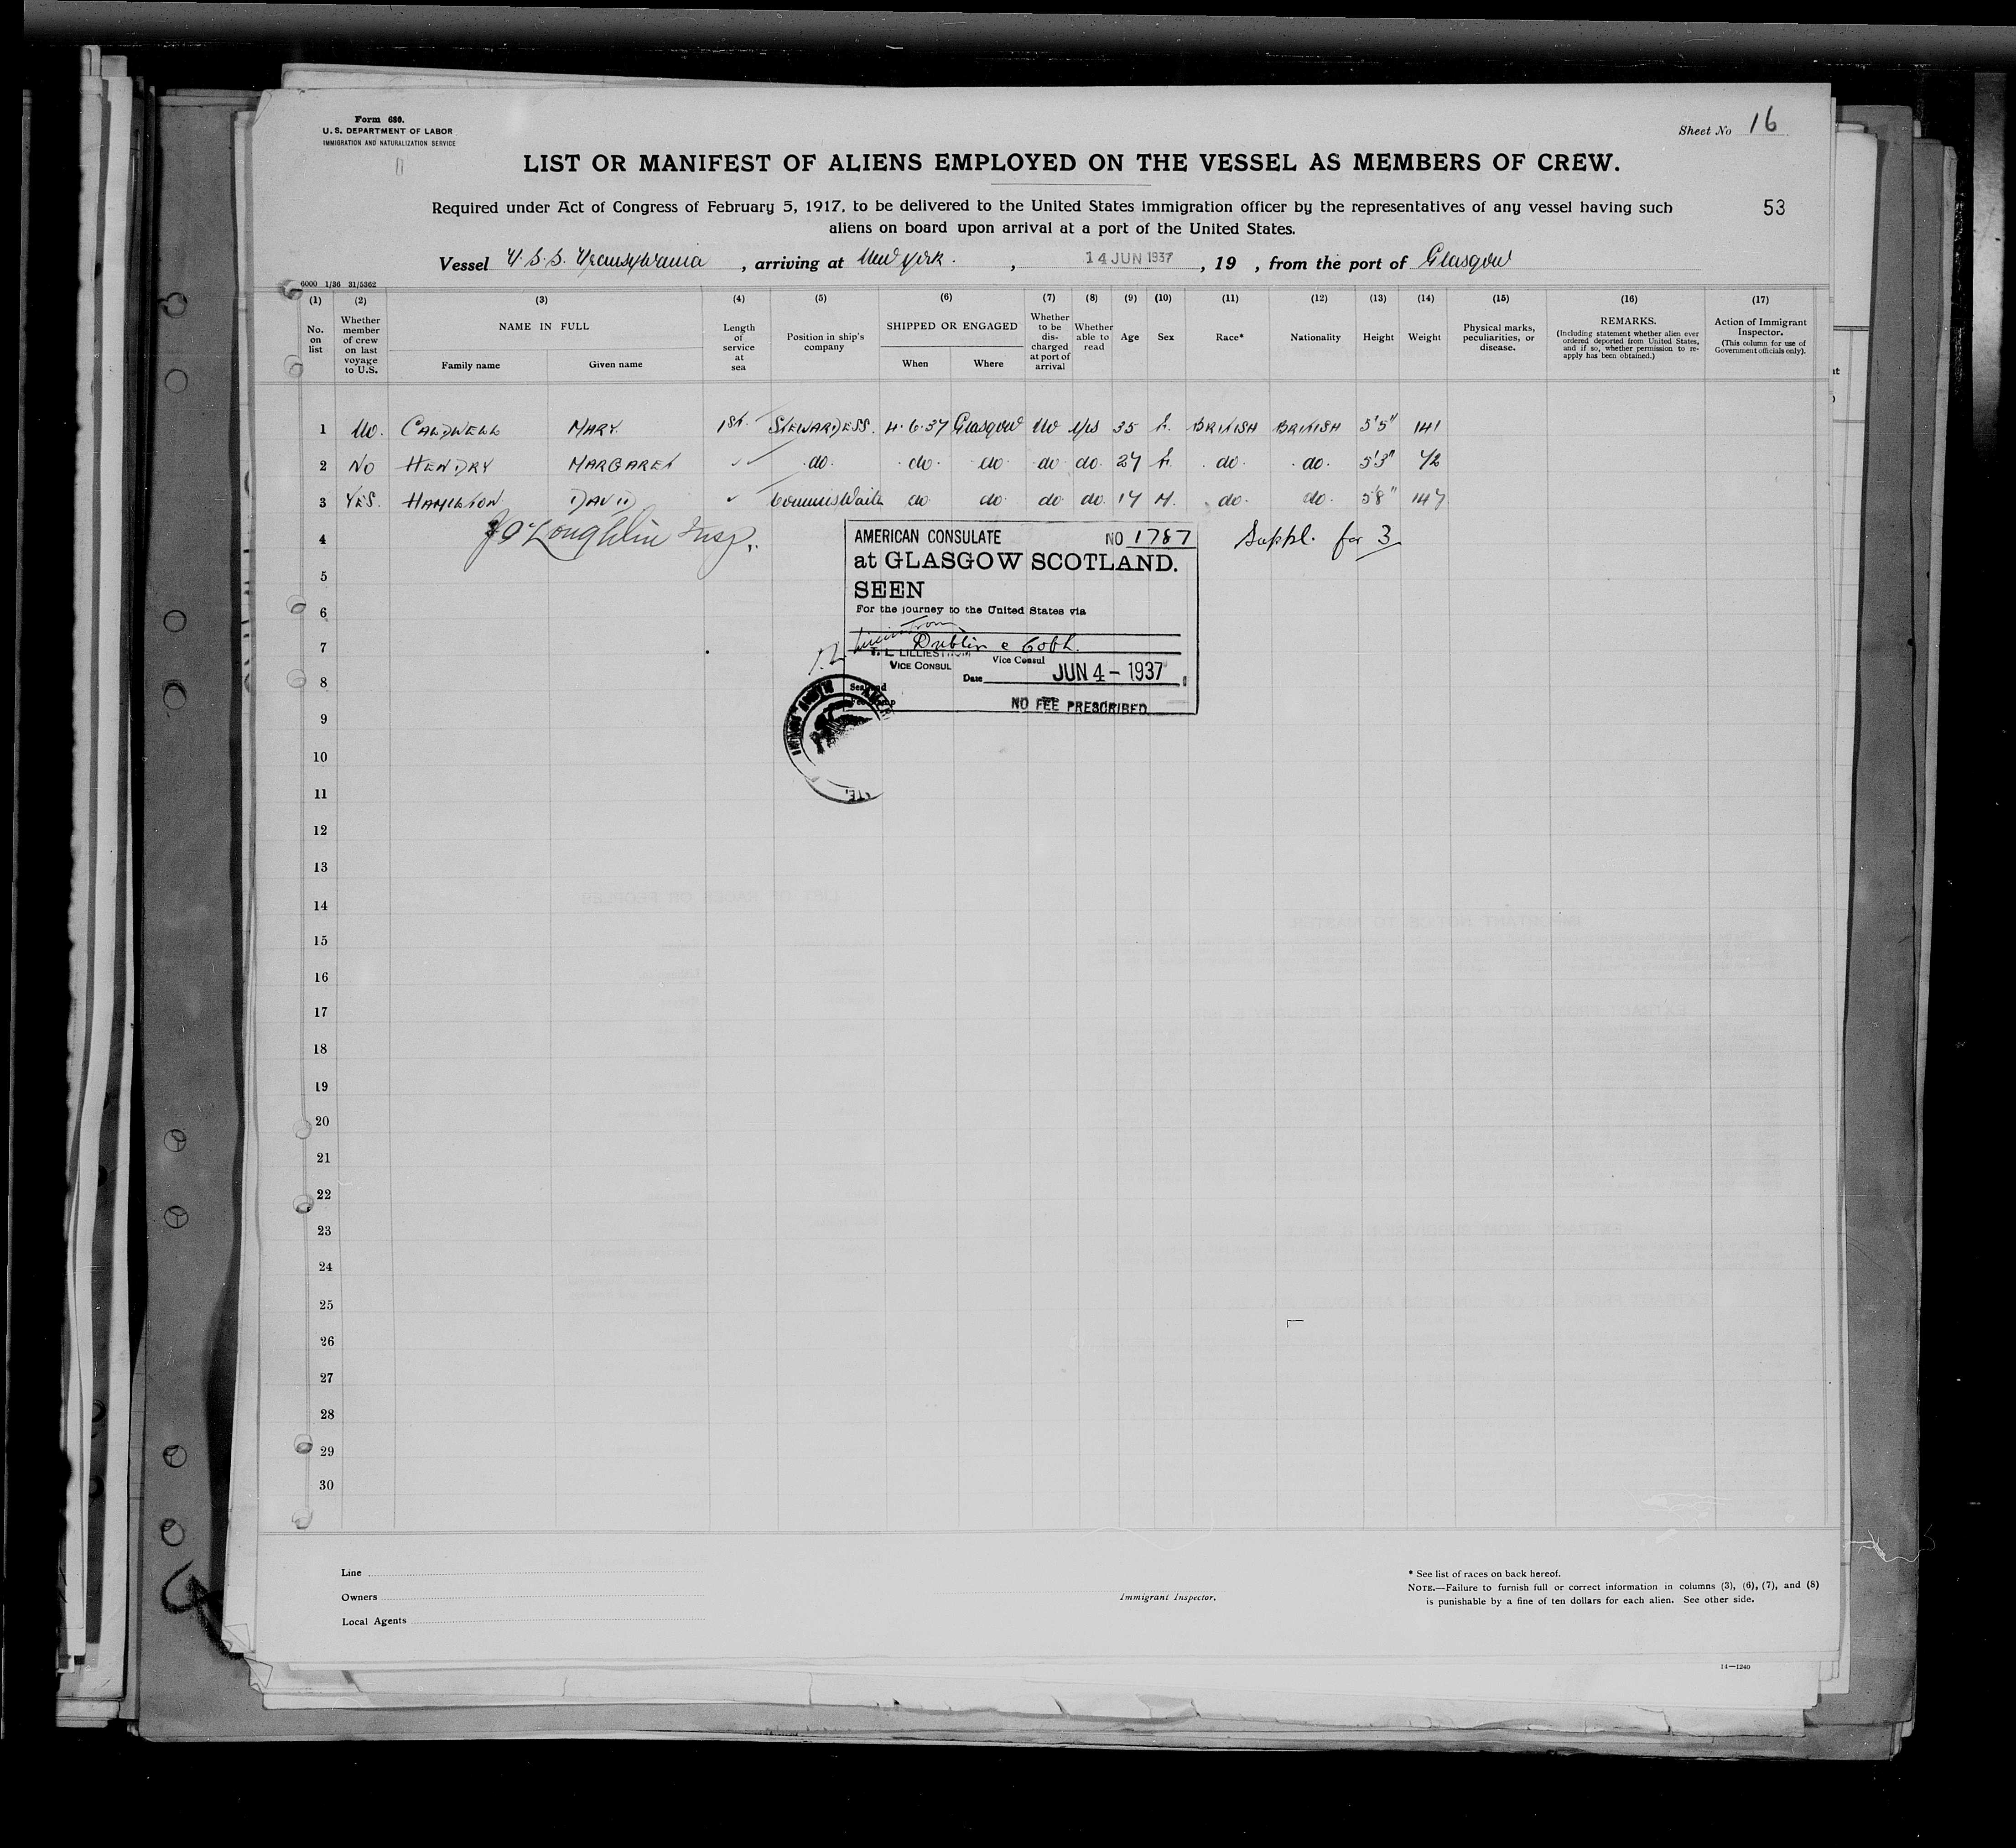 Form 680.
U. S. DEPARTMENT OF LABOR
IMMIGRATION AND NATURALIZATION SERVICE
Sheet No 16
LIST OR MANIFEST OF ALIENS EMPLOYED ON THE VESSEL AS MEMBERS OF CREW.
Required under Act of Congress of February 5, 1917, to be delivered to the United States immigration officer by the representatives of any vessel having such
53
aliens on board upon arrival at a port of the United States.
Vessel T.S.S. Transylvania, arriving at New York., 14 JUN 1937, 19 , from the port of Glasgow
6000 1/36 31/5362
(1) (2) (3) (4) (5) (6) (7) (8) (9) (10) (11) (12) (13) (14) (15) (16) (17)
No. on list
Whether member of crew on last voyage to U.S.
NAME IN FULL
Family name
Given name
Length of service at sea
Position in ship's company
SHIPPED OR ENGAGED
When
Where
Whether to be discharged at port of arrival
Whether able to read
Age
Sex
Race*
Nationality
Height
Weight
Physical marks, peculiarities, or disease.
REMARKS.
(Including statement whether alien ever ordered deported from United States, and if so, whether permission to reapply has been obtained.)
Action of Immigrant Inspector.
(This column for use of Government officials only).
1 No. CALDWELL MARY. 1st. STEWARDESS. 4.6.37 Glasgow No Yes 35 f. BRITISH BRITISH 5'5" 141
2 NO HENDRY MARGARET ✓✓ .do. .do. do. do do. 27 f. .do. .do. 5'3"
3 YES. HAMILTON. DAVID ✓ Commis Waiter do. do. do. do. 17 M. do. do. 5'8" 147
4 Insp. Suppl. for 3
AMERICAN CONSULATE NO 1787
at GLASGOW SCOTLAND.
SEEN
For the journey to the United States via
Dublin & Cobh.
VICE CONSUL Vice Consul
Date JUN 4 - 1937
Seal and
Fee Stamp
NO FEE PRESCRIBED
5
6
7
8
9
10
11
12
13
14
15
16
17
18
19
20
21
22
23
24
25
26
27
28
29
30
Line
Owners
Local Agents
Immigrant Inspector.
* See list of races on back hereof.
NOTE.—Failure to furnish full or correct information in columns (3), (6), (7), and (8)
is punishable by a fine of ten dollars for each alien. See other side.
14—1240